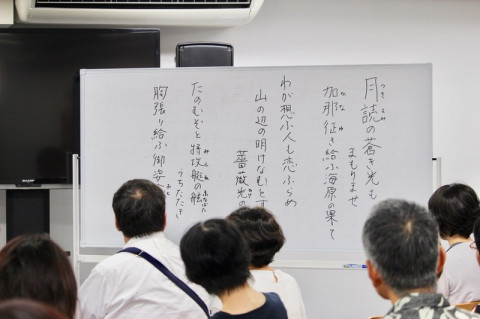 月読の蒼き光も
まもりませ
加那征き給ふ海原の果て
わが想ふ人も恋ふらめ
山の辺の明けなむとす
薔薇光の
たのむぞと特攻艇の舷
うちたたき
胸張り給ふ御姿
SHARP